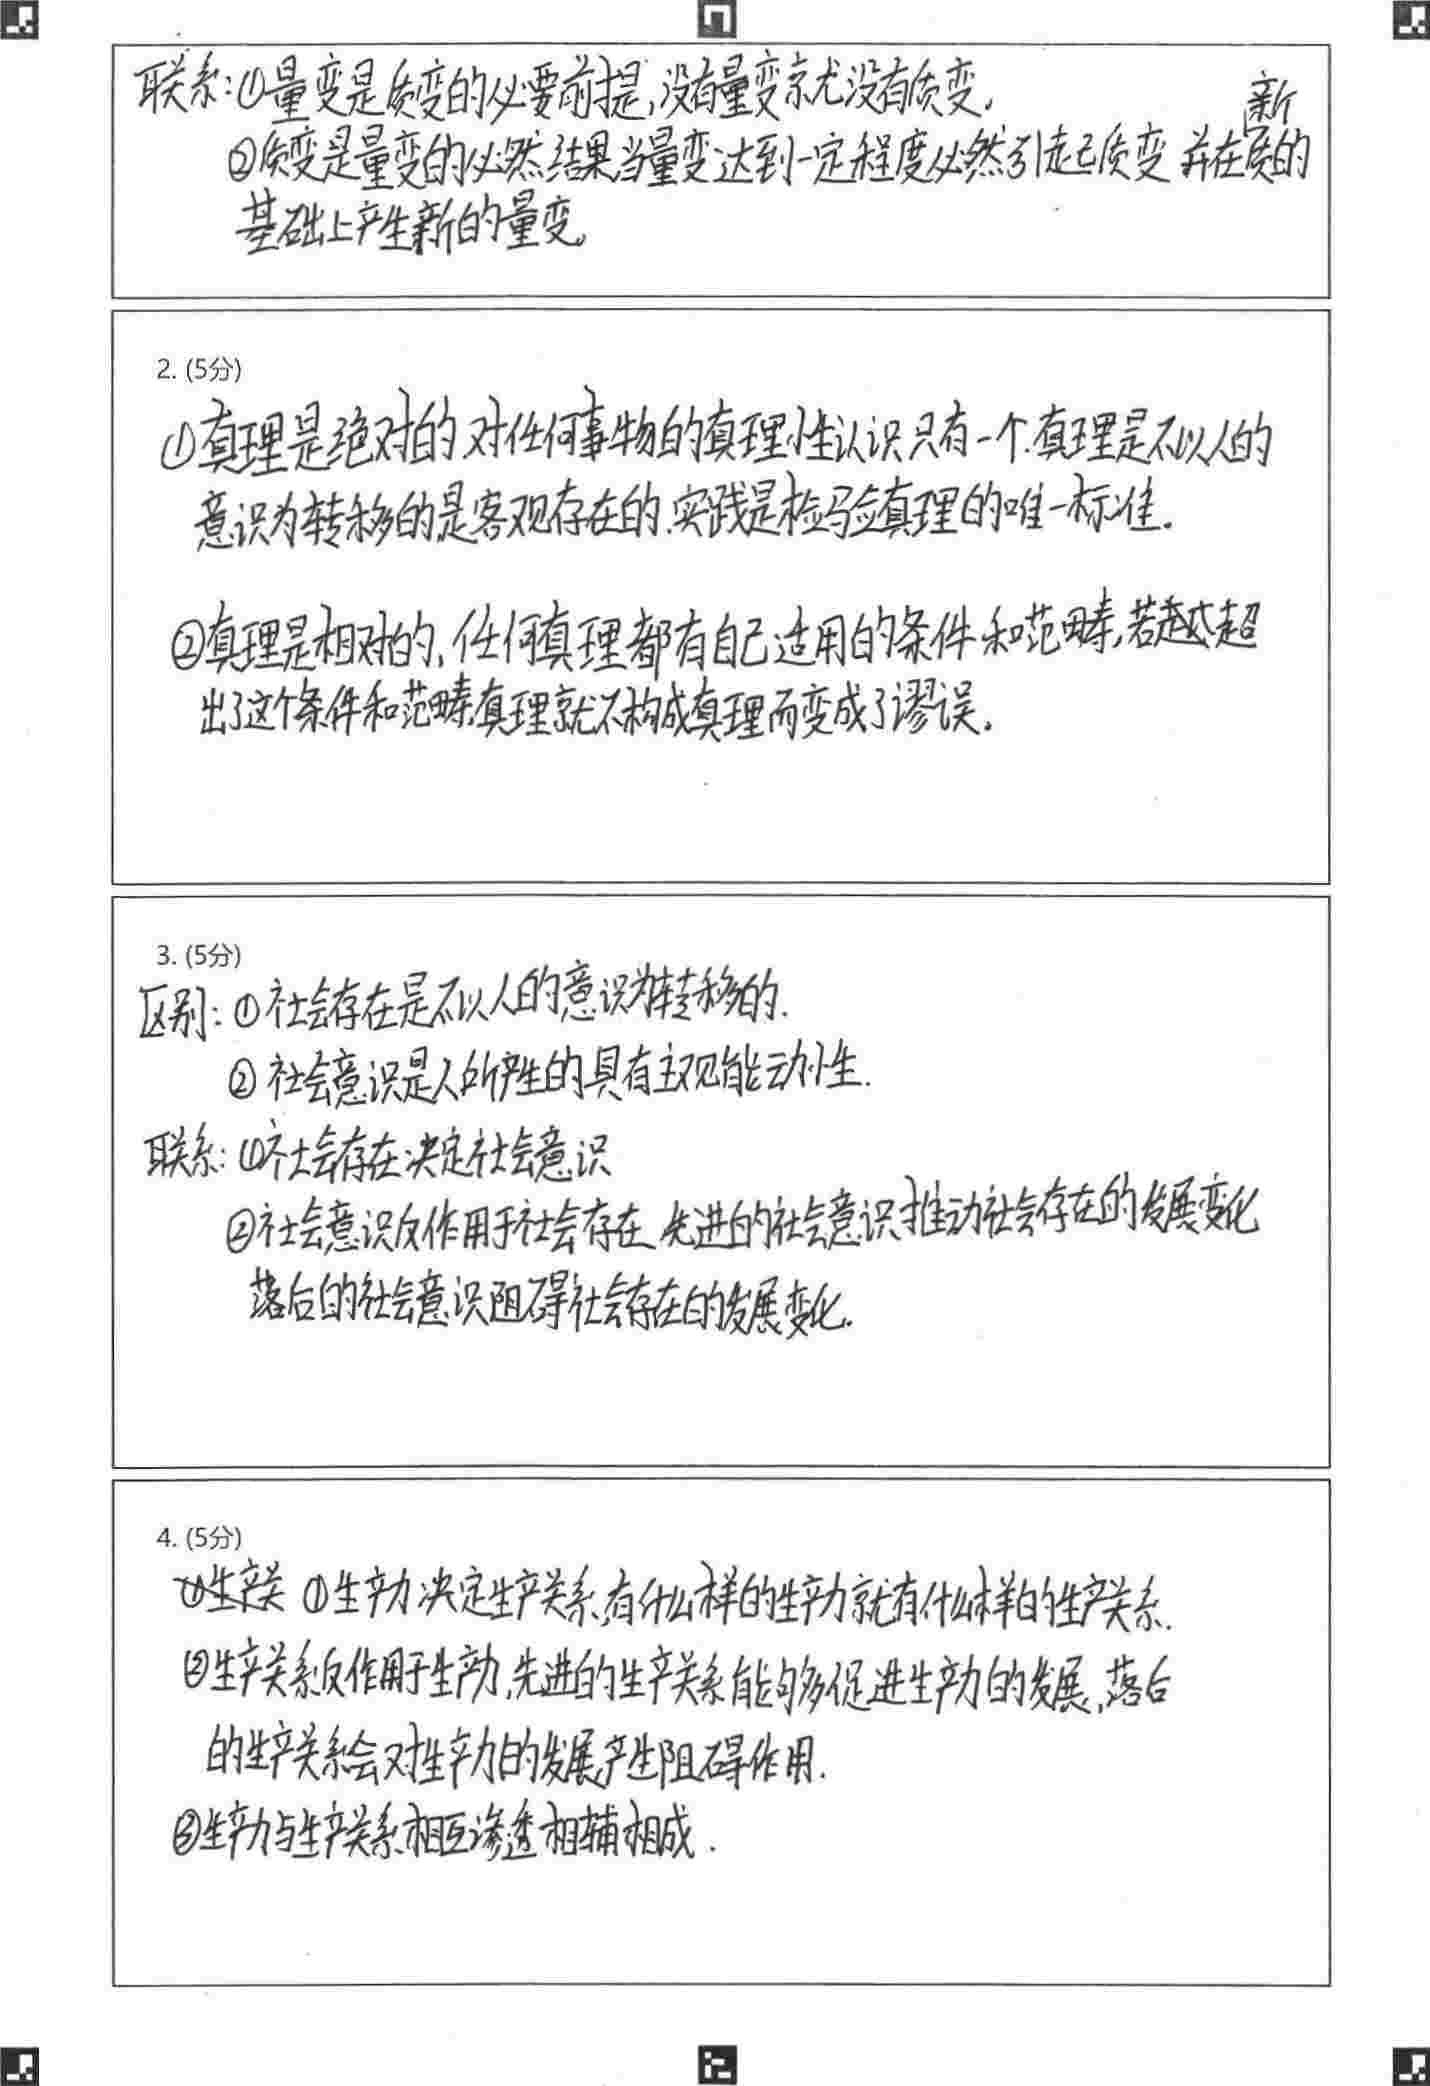 联系：①量变是质变的必要前提，没有量变就没有质变。
②质变是量变的必然结果，当量变达到一定程度必然引起质变 并在新质的
基础上产生新的量变。
2. (5分)
①真理是绝对的 对任何事物的真理性认识只有一个.真理是不以人的
意识为转移的,是客观存在的.实践是检验真理的唯一标准。
②真理是相对的，任何真理都有自己适用的条件和范畴，若超
出了这个条件和范畴,真理就不构成真理而变成了谬误。
3. (5分)
区别：①社会存在是不以人的意识为转移的.
②社会意识是人所产生的具有主观能动性.
联系：①社会存在决定社会意识
②社会意识反作用于社会存在,先进的社会意识推动社会存在的发展变化
落后的社会意识阻碍社会存在的发展变化.
4. (5分)
①生产关 ①生产力决定生产关系,有什么样的生产力就有什么样的生产关系.
②生产关系反作用于生产力,先进的生产关系能够促进生产力的发展,落后
的生产关系会对生产力的发展产生阻碍作用.
③生产力与生产关系相互渗透相辅相成.